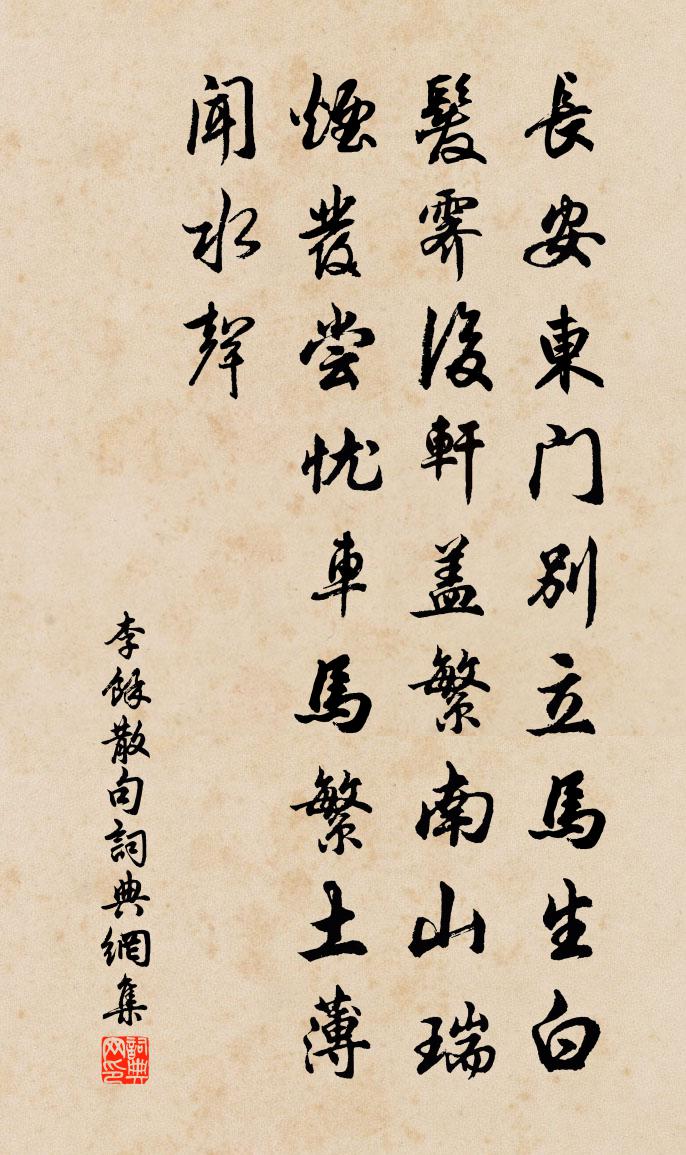 長安東門別立馬生白
髮霽後軒蓋繁南山瑞
煙發尝忧車馬繁土薄
聞水聲
李餘散句詞典網集
詞典网印